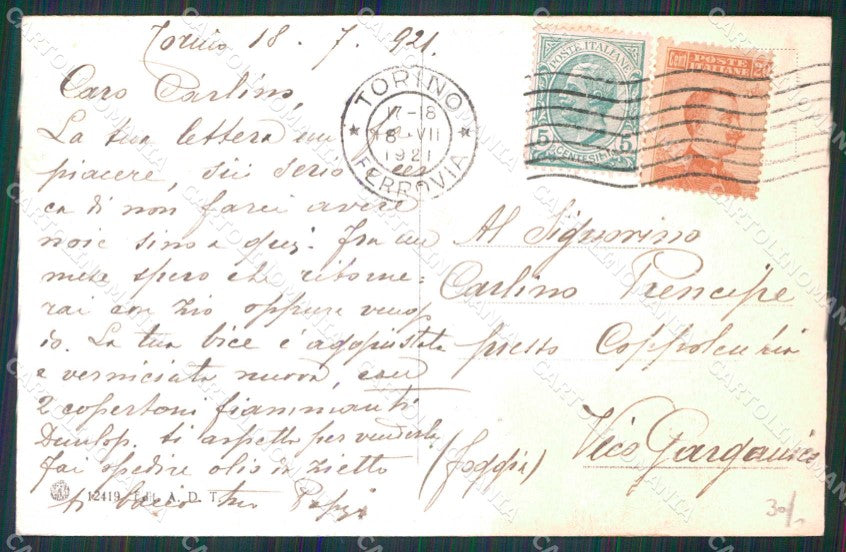 Torino 18. 7. 921.
Caro Carlino,
La tua lettera mi
piacere, sii serio
ca di non farci avere
noie sino a qui. Fra un
mese spero che ritorne=
rai con zio oppure
io. La tua bice è aggiustata
e verniciata nuova, con
2 copertoni fiammanti
Dunlop. ti aspetta per vederla
Fai spedire olio da zietto
ti bacio tuo Papà
12419 Edit. A. D. T.
TORINO
17-18
18 VII
1921
FERROVIA
POSTE ITALIANE
5 CENTESIMI 5
Cent 20
POSTE
ITALIANE
Al Signorino
Carlino Prencipe
presso
Vico Garganico
(Foggia)
30/-
CARTOLINOMANIA